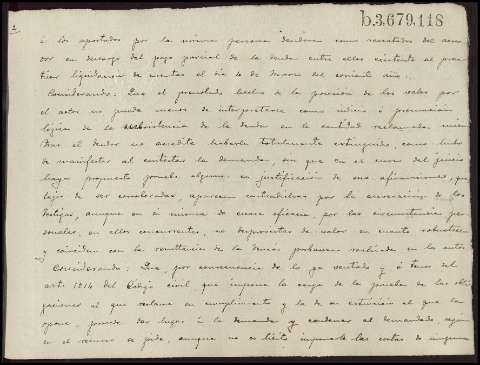 b.3.679.118
2
ó los aportados por la misma persona deudora como resultados del acree
dor en descargo del pago parcial de la deuda entre ellos existente al prac
ticar liquidación de cuentas el día 10 de Enero del corriente año.
Considerando: Que el presentado hecho de la posesión de los vales por
el actor no puede menos de interpretarse como indicio ó presunción
lógica de la subsistencia de la deuda en la cantidad reclamada mien
tras el deudor no acredite haberla totalmente extinguido, como hubo
de manifestar al contestar la demanda, sin que en el curso del juicio
haya propuesto prueba alguna en justificación de sus afirmaciones, que
lejos de ser corroboradas, aparecen contradichas por la aseveración de los
testigos, aunque en sí misma de escasa eficacia, por las circunstancias per
sonales en ellos concurrentes, no desprovistas de valor en cuanto robustecen
y coinciden con la resultancia de la demás probanza realizada en los autos
Considerando: Que, por consecuencia de lo ya sentado y á tenor del
art. 1214 del Código civil, que impone la carga de la prueba de las obli
gaciones al que reclama su cumplimiento y la de su extinción al que la
opone, procede dar lugar á la demanda y condenar al demandado según
en el recurso se pide, aunque no es lícito imponerle las costas de ninguna